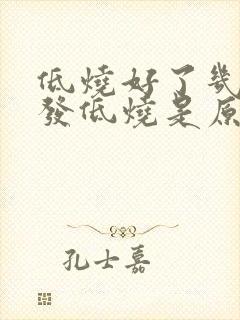 低燒好了幾
發低燒是原
孔士嘉